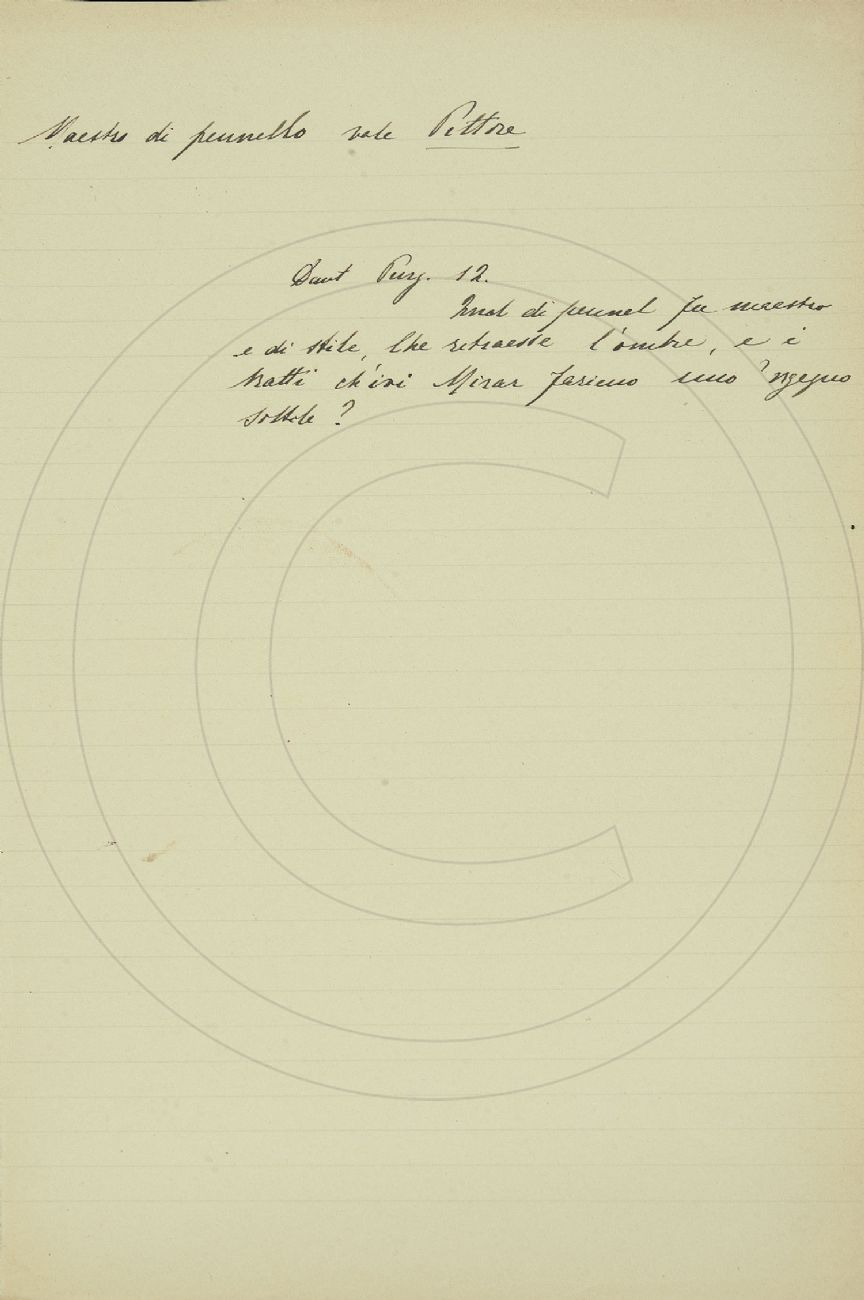 Maestro di pennello vale Pittore
Dant Purg. 12.
Qual di pennel fu maestro
e di stile, Che ritraesse l'ombre, e i
tratti ch'ivi Mirar farieno uno 'ngegno
sottile?